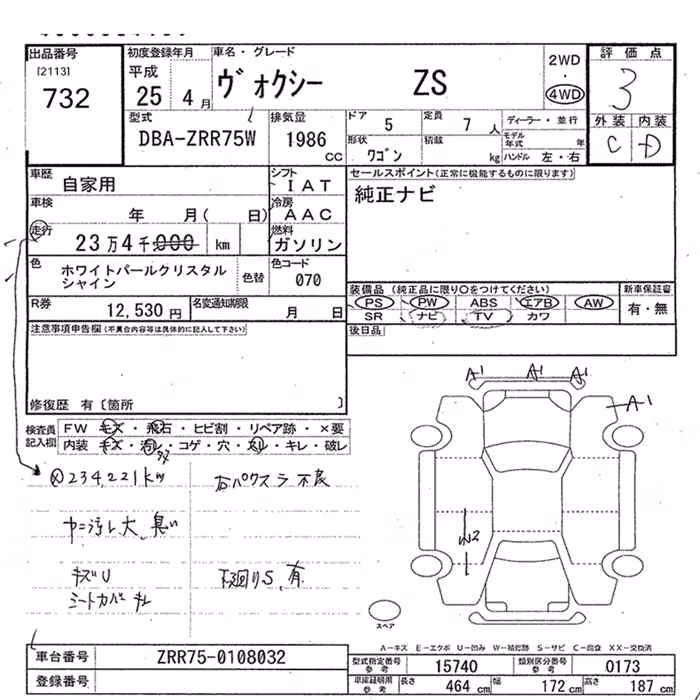 出品番号
[2113]
732
初度登録年月
平成
25 4月
車名・グレード
ヴォクシー ZS
2WD
・
4WD
評価点
3
外装 内装
C D
型式
DBA-ZRR75W
排気量
1986 cc
ドア 5
定員 7 人
形状 ワゴン
積載 kg
ディーラー・並行
モデル年式 年
ハンドル 左・右
車歴 自家用
シフト IAT
車検 年 月( 日)
冷房 AAC
走行 23万4千000 km
燃料 ガソリン
色 ホワイトパールクリスタル
シャイン
色替
色コード 070
R券 12,530 円
名変通知期限 月 日
セールスポイント(正常に機能するものに限ります)
純正ナビ
装備品 (純正品に限り○をつけてください)
PS PW ABS エアB AW
SR ナビ TV カワ
新車保証書
有・無
後日品
注意事項申告欄(不具合内容等は具体的に記入して下さい)
修復歴 有〔箇所 〕
検査員
記入欄
FW キズ・飛石・ヒビ割・リペア跡・×要
内装 キズ・汚レ・コゲ・穴・スレ・キレ・破レ
234,221km
右パワスラ不良
ヤニ汚レ大、臭い
キズU
シートカバーキレ
下廻りS有
A1 A1 A1
A1
W2
スペア
A-キズ E-エクボ U-凹み W-補修跡 S-サビ C-腐食 XX-交換済
車台番号 ZRR75-0108032
登録番号
型式指定番号
参考
15740
類別区分番号
参考
0173
車庫証明用
参考
長さ 464 cm
幅 172 cm
高さ 187 cm